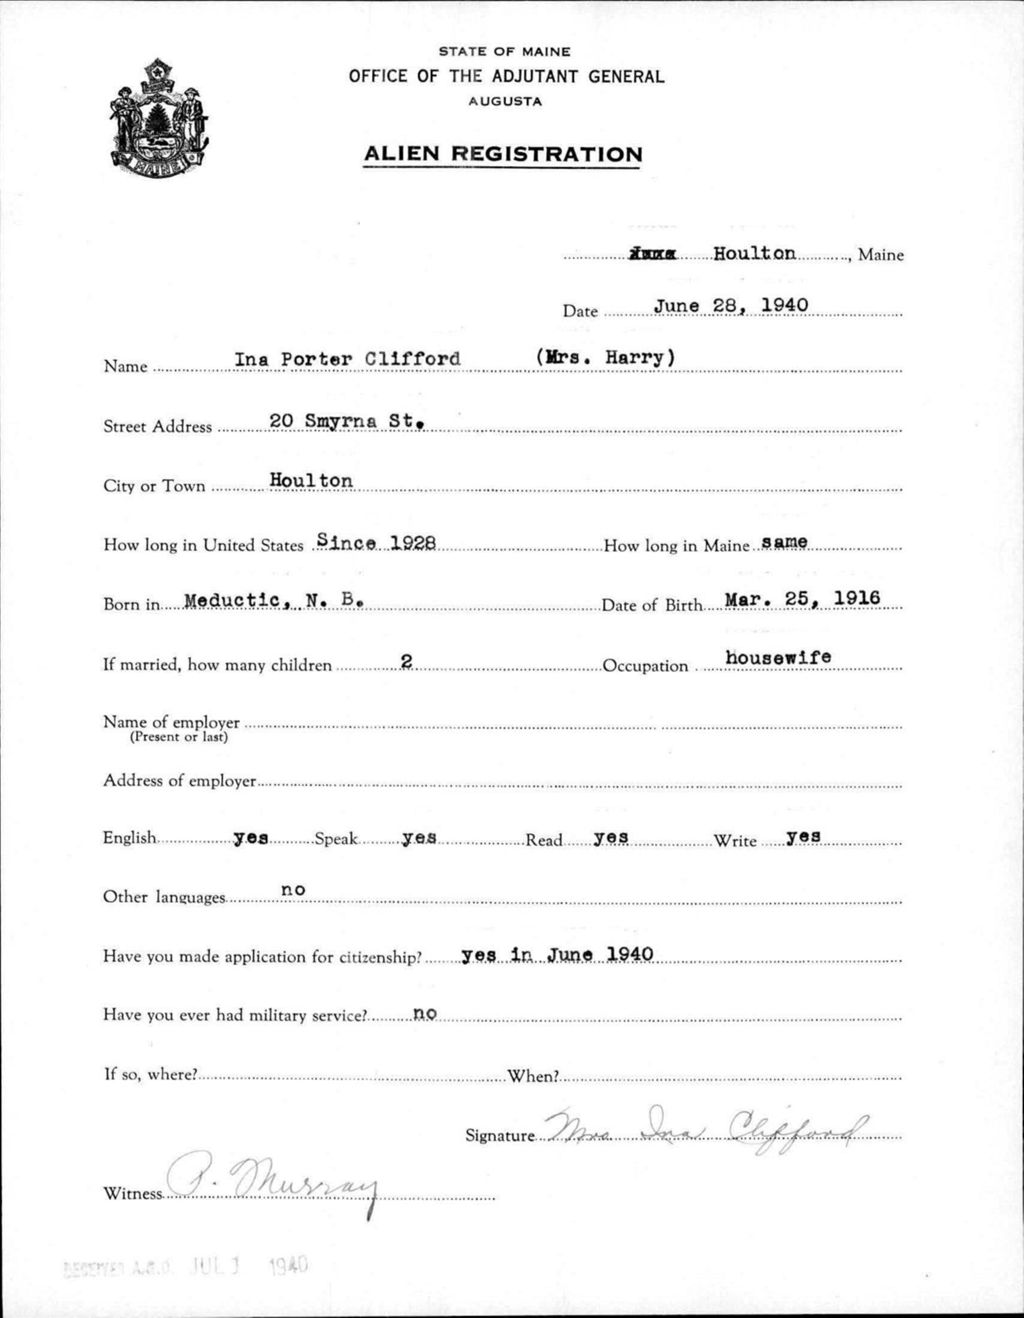 STATE OF MAINE
OFFICE OF THE ADJUTANT GENERAL
AUGUSTA
ALIEN REGISTRATION
MAINE
Houlton, Maine
Date June 28, 1940
Name Ina Porter Clifford (Mrs. Harry)
Street Address 20 Smyrna St.
City or Town Houlton
How long in United States Since 1928 How long in Maine same
Born in Meductic, N. B. Date of Birth Mar. 25, 1916
If married, how many children 2 Occupation housewife
Name of employer
(Present or last)
Address of employer
English yes Speak yes Read yes Write yes
Other languages no
Have you made application for citizenship? yes in June 1940
Have you ever had military service? no
If so, where? When?
Signature Mrs Ina Clifford
Witness P. Murray
RECEIVED A.G.O. JUL 1 1940